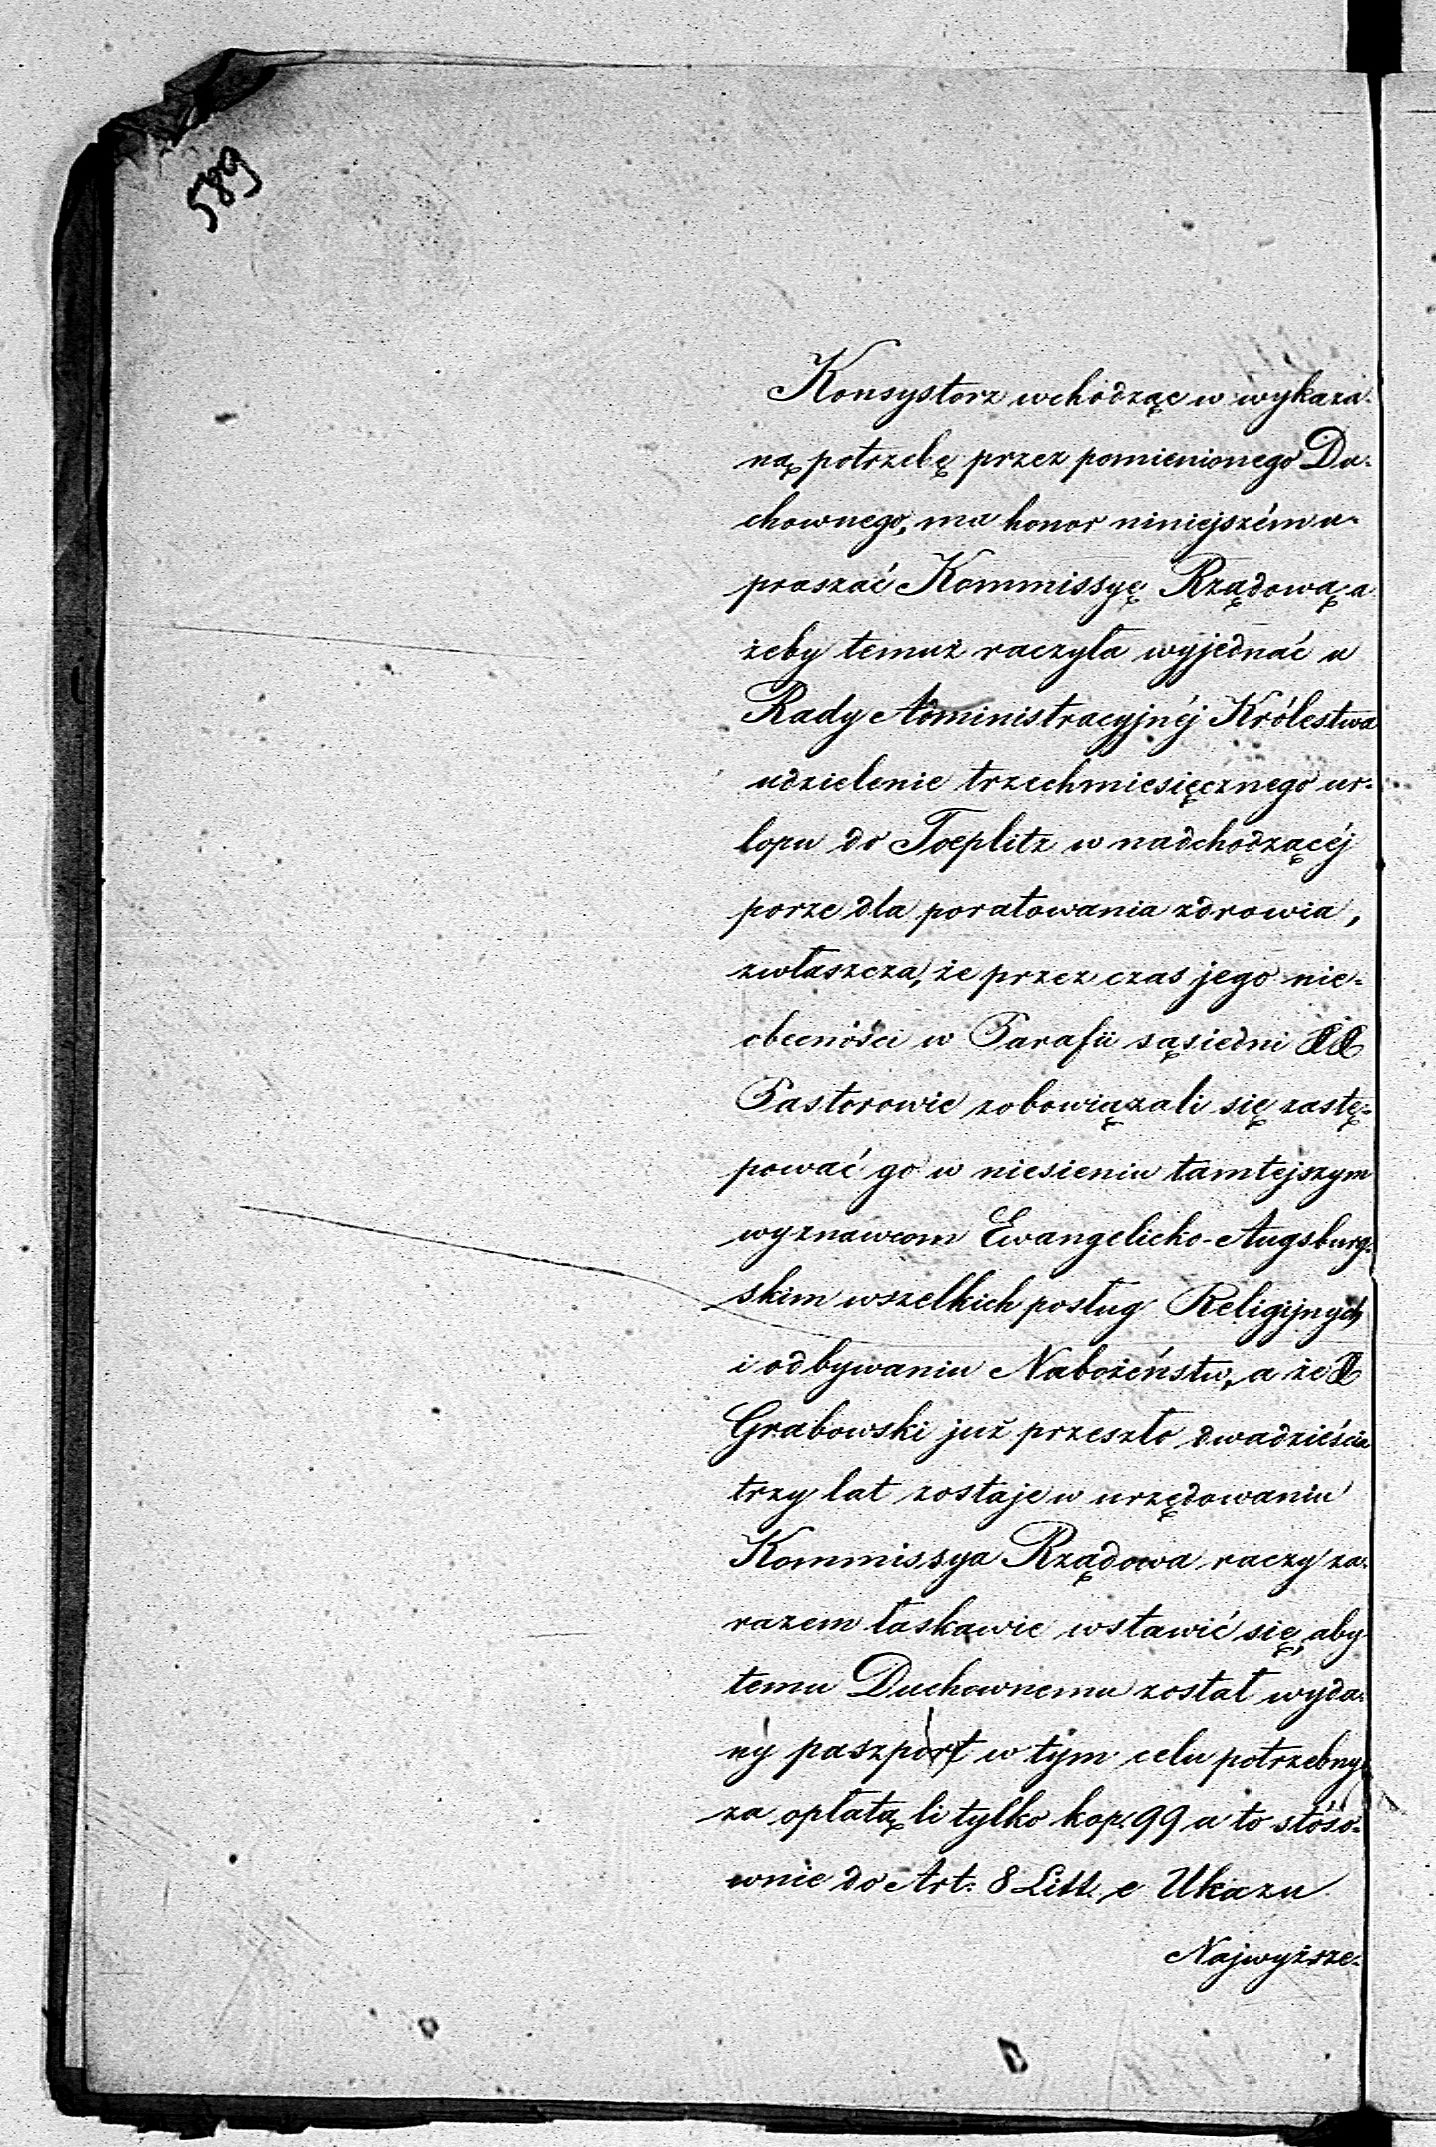 589
Konsystorz wchodząc w wykaza-
ną potrzebę przez pomienionego Du-
chownego, ma honor niniejszém u-
praszać Kommissyę Rządową a-
żeby temuż raczyła wyjednać u
Rady Administracyjnéj Królestwa
udzielenie trzechmiesięcznego ur-
lopu do Toeplitz w nadchodzącéj
porze dla poratowania zdrowia,
zwłaszcza, że przez czas jego nie-
obecności w Parafii sąsiedni XX
Pastorowie zobowiązali się zastę-
pować go w niesieniu tamtejszym
wyznawcom Ewangelicko-Augsburg-
skim wszelkich posług Religijnych
i odbywaniu Nabożeństw, a że X
Grabowski już przeszło dwadzieścia
trzy lat zostaje w urzędowaniu
Kommissya Rządowa raczy za-
razem łaskawie wstawić się, aby
temu Duchownemu został wyda-
ny paszport w tym celu potrzebny
za opłatą li tylko kop. 99 a to stóso-
wnie do Art. 8 Litt. e Ukazu
Najwyższe-